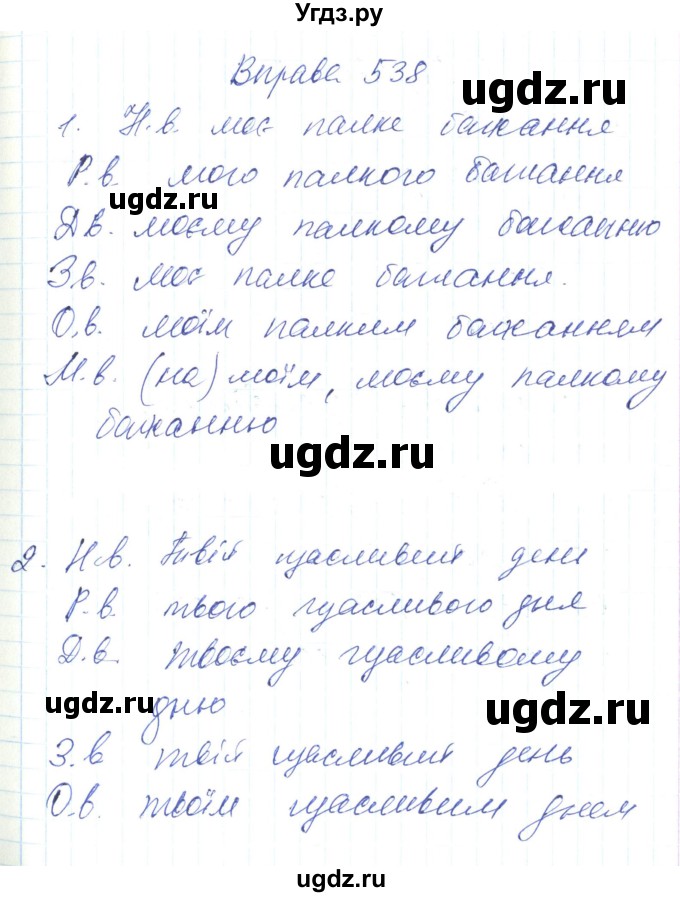 Угдз.ру
Вправа 538
ugdz.ru
1. Н.в. моє палке бажання
Р.в. мого палкого бажання
ugdz.ru
Д.в. моєму палкому бажанню
З.в. моє палке бажання.
О.в. моїм палким бажанням
М.в. (на) моїм, моєму палкому
бажанню
ugdz.ru
2. Н.в. Твій щасливий день
Р.в. твого щасливого дня
Д.в. твоєму щасливому
ugdz.ru
дню
ugdz.ru
З.в твій щасливий день
О.в. твоїм щасливим днем
ugdz.ru